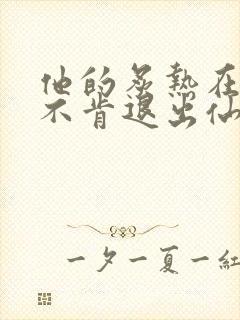 他的炙熱在
不肯退出仙
一夕一夏一紅